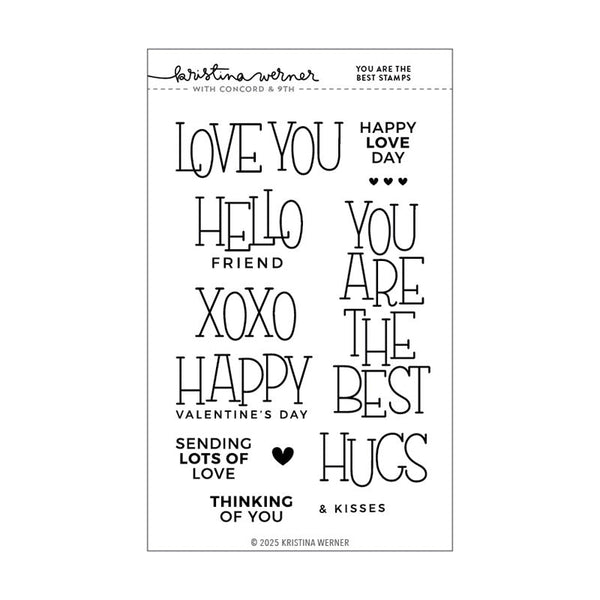 kristina werner
WITH CONCORD & 9TH
YOU ARE THE
BEST STAMPS
LOVE YOU
HAPPY
LOVE
DAY
HELLO
FRIEND
YOU
ARE
THE
BEST
XOXO
HAPPY
VALENTINE'S DAY
SENDING
LOTS OF
LOVE
HUGS
& KISSES
THINKING
OF YOU
© 2025 KRISTINA WERNER